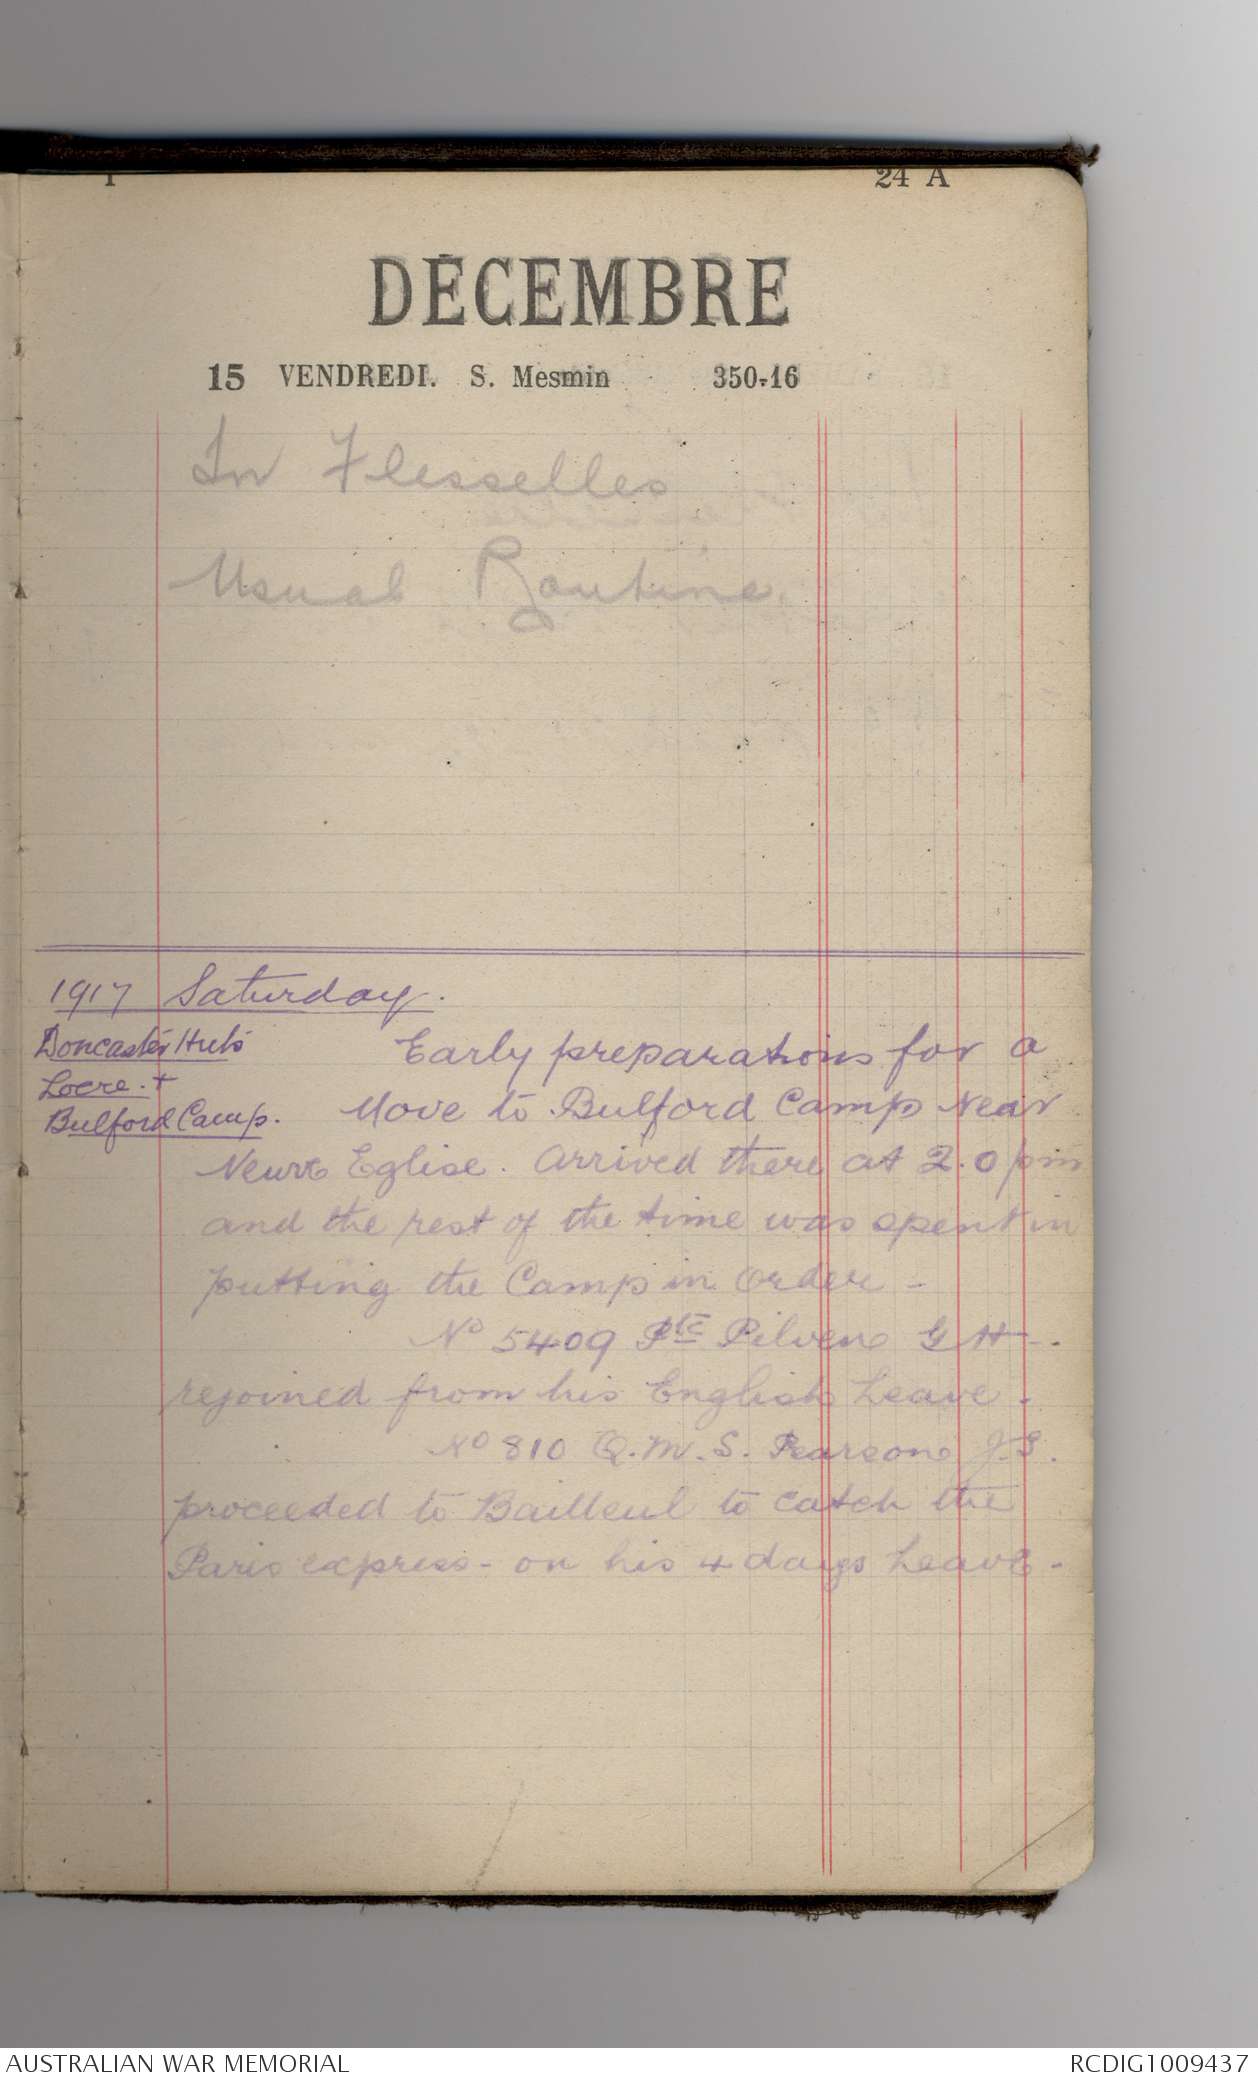 24 A
DÉCEMBRE
15 VENDREDI. S. Mesmin 350-16
In Flesselles
Usual Routine.
1917 Saturday.
Doncaster Huts
Locre. +
Bulford Camp.
Early preparations for a
Move to Bulford Camp Near
Neuve Eglise. Arrived there at 2.0 pm
and the rest of the time was spent in
putting the Camp in order -
No 5409 Pte Pilven G H -.
rejoined from his English Leave.
No 810 Q.M.S. Pearson J.S.
proceeded to Bailleul to catch the
Paris express - on his 4 days Leave -
AUSTRALIAN WAR MEMORIAL
RCDIG1009437